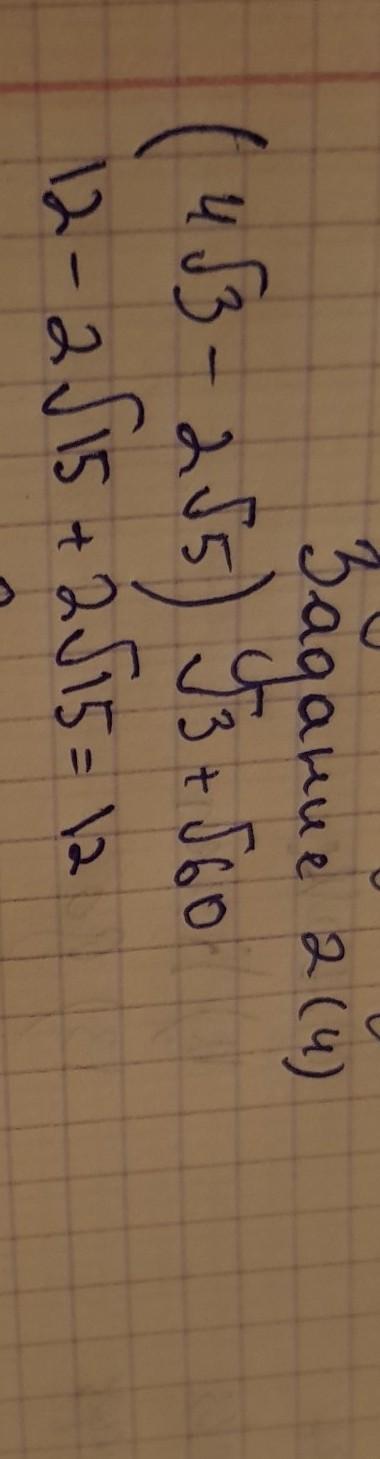 Задание 2(4)
(4√3 - 2√5) √3 + √60
12 - 2√15 + 2√15 = 12